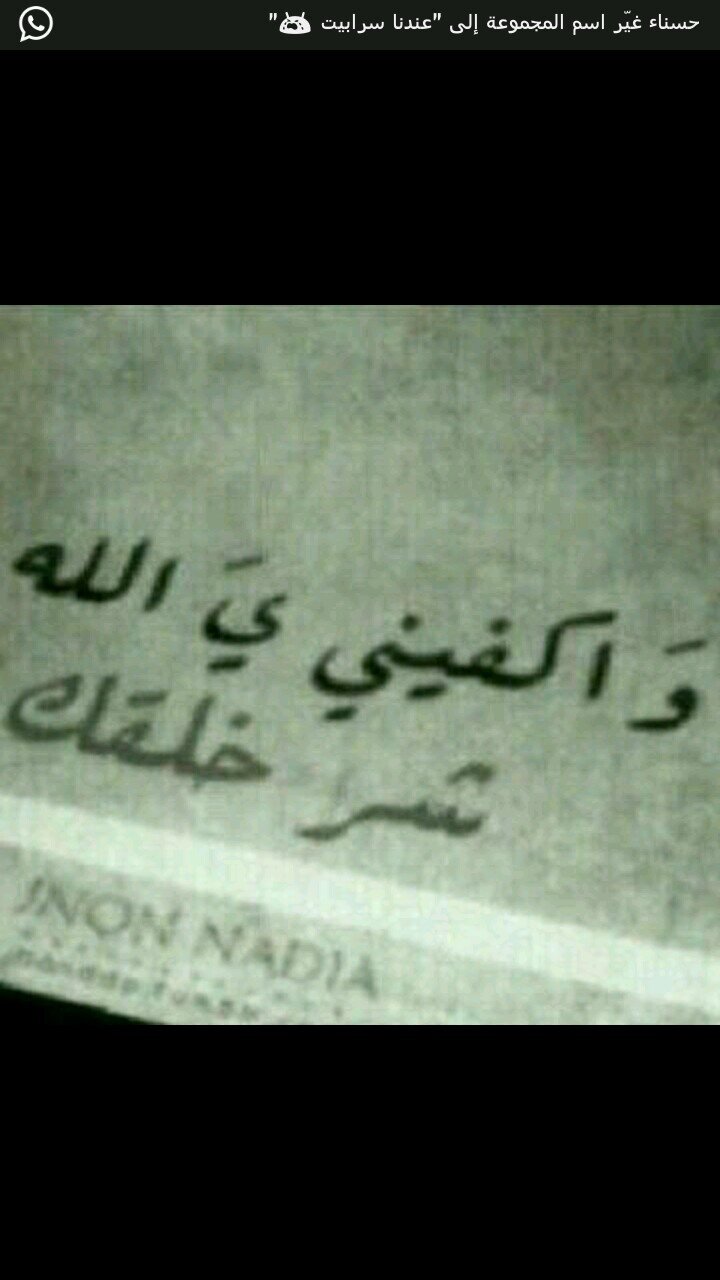 حسناء غيّر اسم المجموعة إلى "عندنا سرابيت"
وَ اكفيني يَ الله
شر خلقك
JNON NADIA